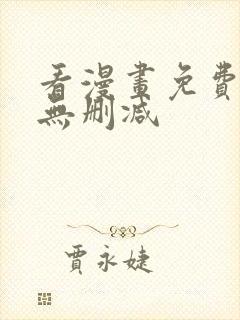 看漫畫免費
無刪减
賈永婕